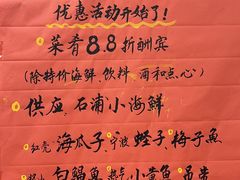 优惠活动开始了!
菜肴8.8折酬宾
(除特价海鲜、饮料、酒和点心)
供应、石浦小海鲜
红壳海瓜子、宁波蛏子、梅子鱼
白鲳 小黄鱼